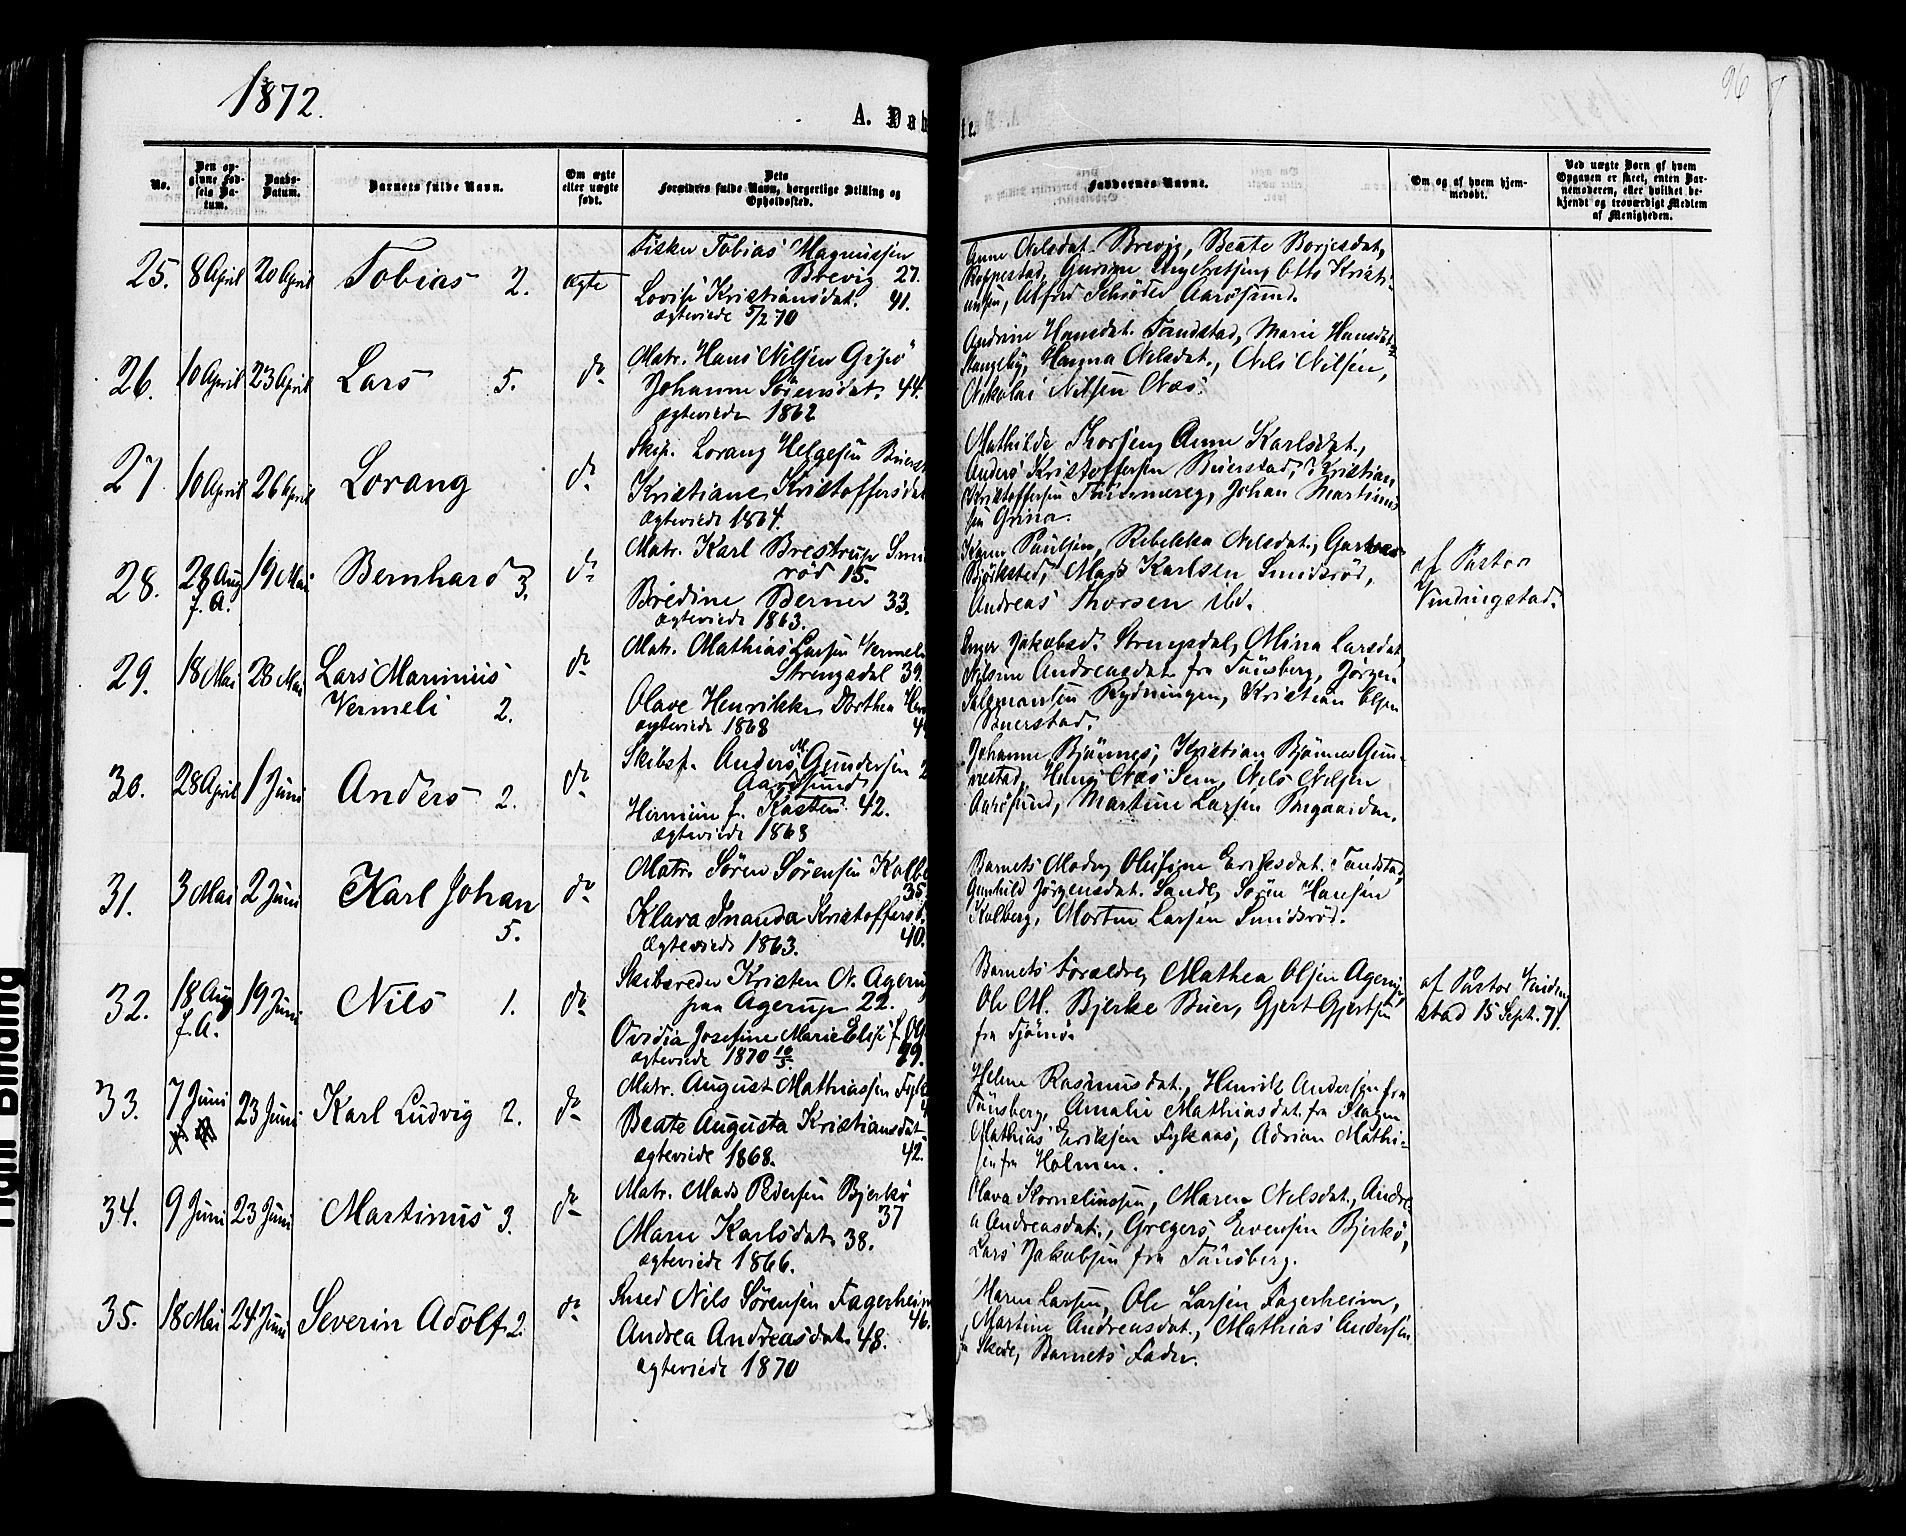 1872.
96
A. Døb
te.
No.
Den opgivne Fødsels Datum.
Daabs-Datum.
Barnets fulde Navn.
Om ægte eller uægte født.
Dets Forældres fulde Navn, borgerlige Stilling og Opholdssted.
Faddernes Navne.
Om og af hvem hjemmedøbt.
Ved uægte Børn af hvem Opgaven er skeet, enten Barnemoderen, eller hvilket bekjendt og troværdigt Medlem af Menigheden.
25. 8 April 20 April Tobias 2. ægte
Fisker Tobias Magnussen
Brevig 27.
Lovise Kristiansdat. 41.
ægteviede 5/2 70
Anne Nilsdat. Brevig, Beate Borjesdat.
Gurine Otto Kristi-
ansen, Alfred Schrøder Aarøsund.
26. 10 April 23 April Lars 5. do
Matr. Hans Nilsen Gipø
Johanne Sørensdat. 44.
ægteviede 1862
Andrine Hansdat. Tandstad, Marie Hansdat.
Stangeby, Nilsdat., Nils Nilsen,
Nikolai Nilsen Næs.
27 10 April 26 April Lorang do
Skip. Lorang Helgesen
Kristiane Kristoffersdat
ægteviede 1864.
Mathilde Thorsen, Anne Karlsdat.,
Anders Kristoffersen Buerstad, Kristian
Kristoffersen Johan Martinus-
sen Grina.
28. 28 Aug f. A. 19 Mai Bernhard 3. do
Matr. Karl Brestrup Smi
rød 15.
Bredine Berner 33.
ægteviede 1863.
Karen Paulsen, Rebekka Nilsdat., Gustava
Bjørksted, Mads Karlsen Smidsrød,
Andreas Thorsen ibd.
af Pastor
Vindingstad.
29. 18 Mai 28 Mai Lars Marinius
Vermeli 2. do
Matr. Mathias Larsen Vermeli
Strengsdal 39.
Olave Henrikke Dorthea
ægteviede 1868
Inger Jakobsd. Strengsdal, Mina Larsdat,
Nilsine Andreasdat. fra Tønsberg, Jørgen
Salomonsen Rydningen, Kristian Olsen
Buerstad.
30. 28 April 1 Juni Anders 2. do
Skibsf. Anders M. Gundersen
Aarøsund
Hermine f. Kasten 42.
ægteviede 1868
Johanne Bjønnes, Kristian Bjønnes Gun-
nestad, Hans Næs Sem, Nils Nilsen
Aarøsund, Martine Larsen
31. 3 Mai 2 Juni Karl Johan
5. do
Matr. Søren Sørensen Kolbe
35.
Klava Inanda Kristoffersd.
ægteviede 1863. 40.
Barnets Moder, Olesine Eriksdat. Tandstad,
Gunhild Jørgensdat. Sande, Søren Hansen
Kolberg, Morten Larsen Smidsrød.
32. 18 Aug f. A. 19 Juni Nils 1. do
Skibsreder Kristen N. Agerup
paa Agerup 22.
Ovidia Josefine Marie Elise f.
ægteviede 1870 10/5. 29.
Barnets Forældre, Mathea Olsen Agerup,
Ole M. Bjerke Buer, Gjert Gjertsen
fra Tjømø.
af Pastor Vinding
stad 15 Sept. 71.
33. 7 Juni 23 Juni Karl Ludvig 2. do
Matr. August Mathiassen
Beate Augusta Kristiansdat
ægteviede 1868. 42.
Helene Rasmusdat., Henrik Andersen fra
Tønsberg, Amalie Mathiasdat. fra Slagen
Mathias Eriksen Fyksaas, Adrian Mathi-
sen fra Holmen.
34. 9 Juni 23 Juni Martinus 3. do
Matr. Mads Pedersen Bjerkø
37
Maren Karlsdat. 38.
ægteviede 1866.
Olava Kornelinssen, Maren Nilsdat., Andre
a Andreasdat., Gregers Evensen Bjerkø,
Lars Jakobsen fra Tønsberg.
35. 18 Mai 24 Juni Severin Adolf 2. do
Nils Sørensen Fagerheim
46.
Andrea Andreasdat. 48.
ægteviede 1870
Maren Larsen, Ole Larsen Fagerheim,
Martine Andreasdat., Mathias Andersen
fra Skede, Barnets Fader.